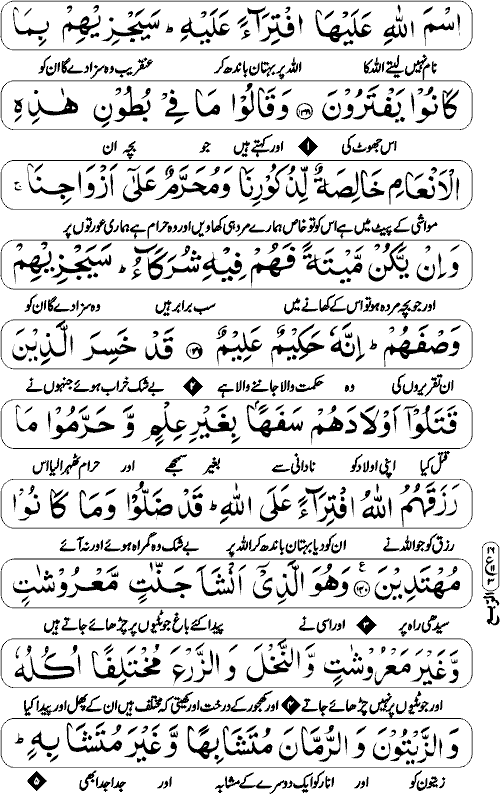 اسْمَ اللّٰهِ عَلَيْهَا افْتِرَآءً عَلَيْهِ ؕ سَيَجْزِيْهِمْ بِمَا
نام نہیں لیتے اللہ کا اللہ پر بہتان باندھ کر عنقریب وہ سزا دے گا ان کو
كَانُوْا يَفْتَرُوْنَ ۝۱۳۸ وَقَالُوْا مَا فِيْ بُطُوْنِ هٰذِهِ
اس جھوٹ کی ۱ اور کہتے ہیں جو بچہ ان
الْاَنْعَامِ خَالِصَةٌ لِّذُكُوْرِنَا وَمُحَرَّمٌ عَلٰٓى اَزْوَاجِنَا ۚ
مواشی کے پیٹ میں ہے اس کو تو خاص ہمارے مرد ہی کھاویں اور وہ حرام ہے ہماری عورتوں پر
وَاِنْ يَّكُنْ مَّيْتَةً فَهُمْ فِيْهِ شُرَكَآءُ ؕ سَيَجْزِيْهِمْ
اور جو بچہ مردہ ہو تو اس کے کھانے میں سب برابر ہیں وہ سزا دے گا ان کو
وَصْفَهُمْ ؕ اِنَّهٗ حَكِيْمٌ عَلِيْمٌ ۝۱۳۹ قَدْ خَسِرَ الَّذِيْنَ
ان تقریروں کی وہ حکمت والا جاننے والا ہے ۲ بے شک خراب ہوئے جنہوں نے
قَتَلُوْٓا اَوْلَادَهُمْ سَفَهًۢا بِغَيْرِ عِلْمٍ وَّ حَرَّمُوْا مَا
قتل کیا اپنی اولاد کو نادانی سے بغیر سمجھے اور حرام ٹھہرا لیا اس
رَزَقَهُمُ اللّٰهُ افْتِرَآءً عَلَى اللّٰهِ ؕ قَدْ ضَلُّوْا وَمَا كَانُوْا
رزق کو جو اللہ نے ان کو دیا بہتان باندھ کر اللہ پر بے شک وہ گمراہ ہوئے اور نہ آئے
مُهْتَدِيْنَ ۝۱۴۰ ع وَهُوَ الَّذِيْٓ اَنْشَاَ جَنّٰتٍ مَّعْرُوْشٰتٍ
سیدھی راہ پر ۳ اور اسی نے پیدا کئے باغ جو ٹٹیوں پر چڑھائے جاتے ہیں
وَّغَيْرَ مَعْرُوْشٰتٍ وَّالنَّخْلَ وَالزَّرْعَ مُخْتَلِفًا اُكُلُهٗ
اور جو ٹٹیوں پر نہیں چڑھائے جاتے ۴ اور کھجور کے درخت اور کھیتی کہ مختلف ہیں ان کے پھل اور پیدا کیا
وَالزَّيْتُوْنَ وَالرُّمَّانَ مُتَشَابِهًا وَّغَيْرَ مُتَشَابِهٍ ؕ
زیتون کو اور انار کو ایک دوسرے کے مشابہ اور جدا جدا بھی ۵
الربع